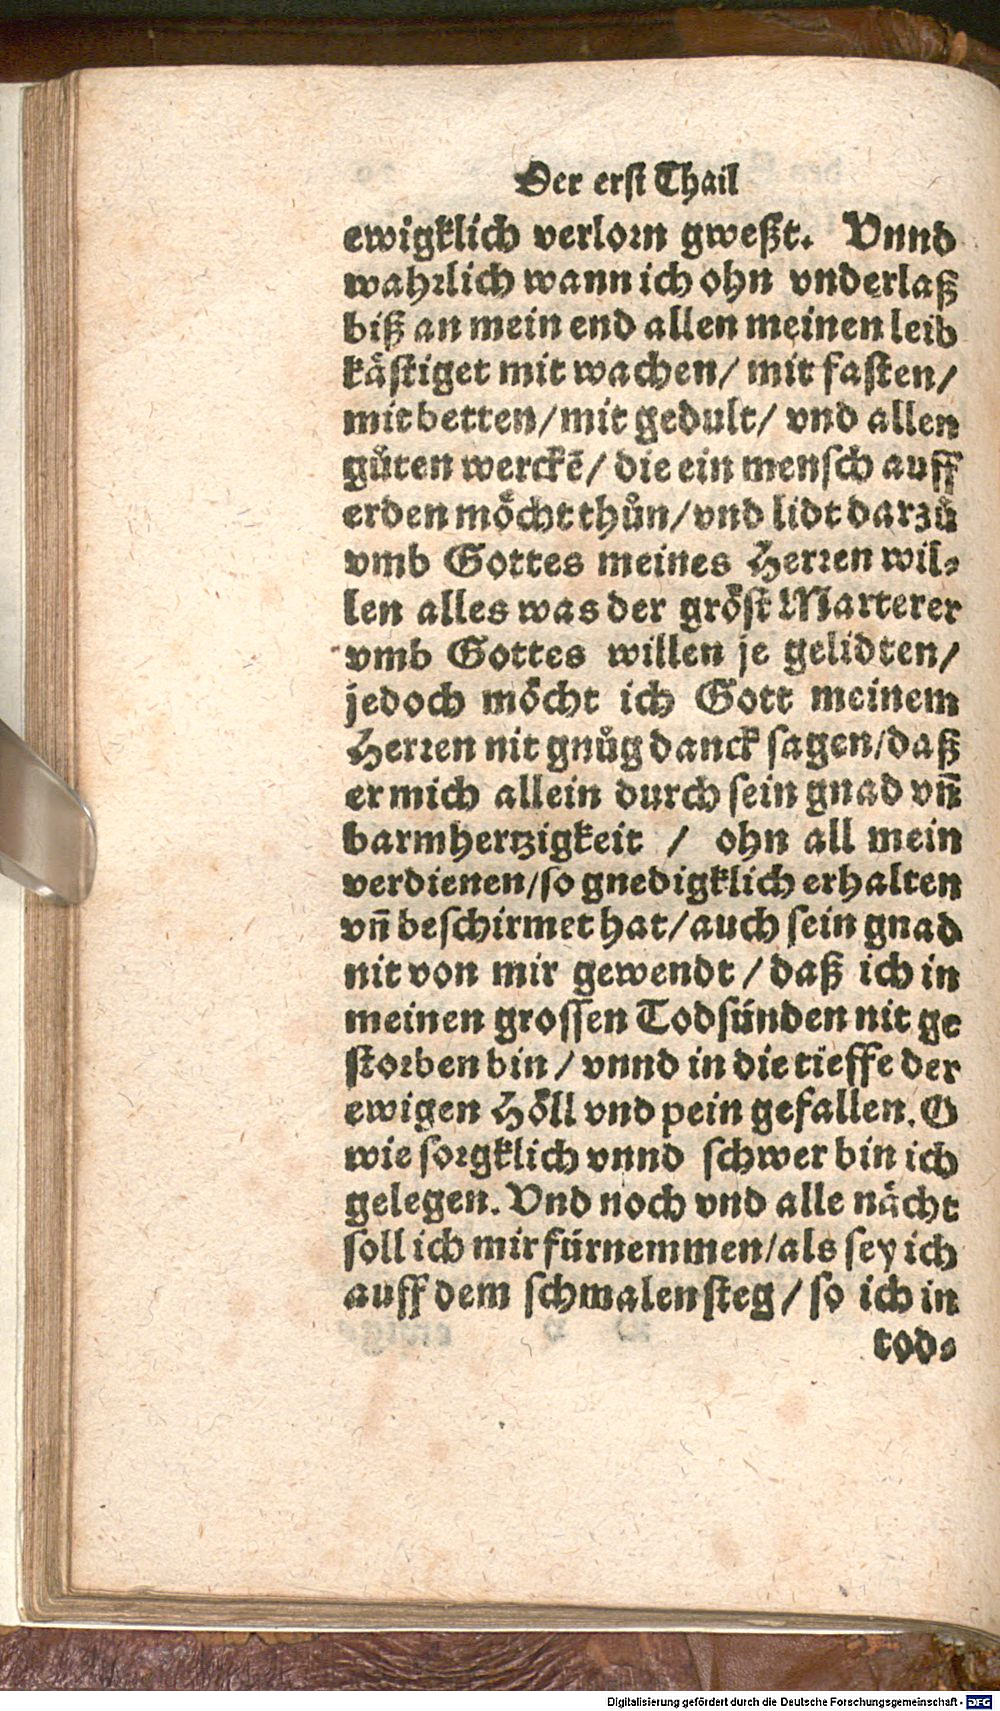 Der erst Thail
ewigklich verlorn gweßt. Vnnd
wahrlich wann ich ohn vnderlaß
biß an mein end allen meinen leib
kästiget mit wachen/ mit fasten/
mit betten/mit gedult/ vnd allen
gůten werckē/ die ein mensch auff
erden möcht thůn/vnd lidt darzů
vmb Gottes meines Herren wil-
len alles was der gröst Marterer
vmb Gottes willen je gelidten/
jedoch möcht ich Gott meinem
Herren nit gnůg danck sagen/daß
er mich allein durch sein gnad vñ
barmhertzigkeit / ohn all mein
verdienen/so gnedigklich erhalten
vñ beschirmet hat/auch sein gnad
nit von mir gewendt/daß ich in
meinen grossen Todsünden nit ge
storben bin/vnnd in die tieffe der
ewigen Höll vnd pein gefallen. O
wie sorgklich vnnd schwer bin ich
gelegen. Vnd noch vnd alle nächt
soll ich mir fürnemmen/als sey ich
auff dem schmalen steg/so ich in
tod-
Digitalisierung gefördert durch die Deutsche Forschungsgemeinschaft - DFG